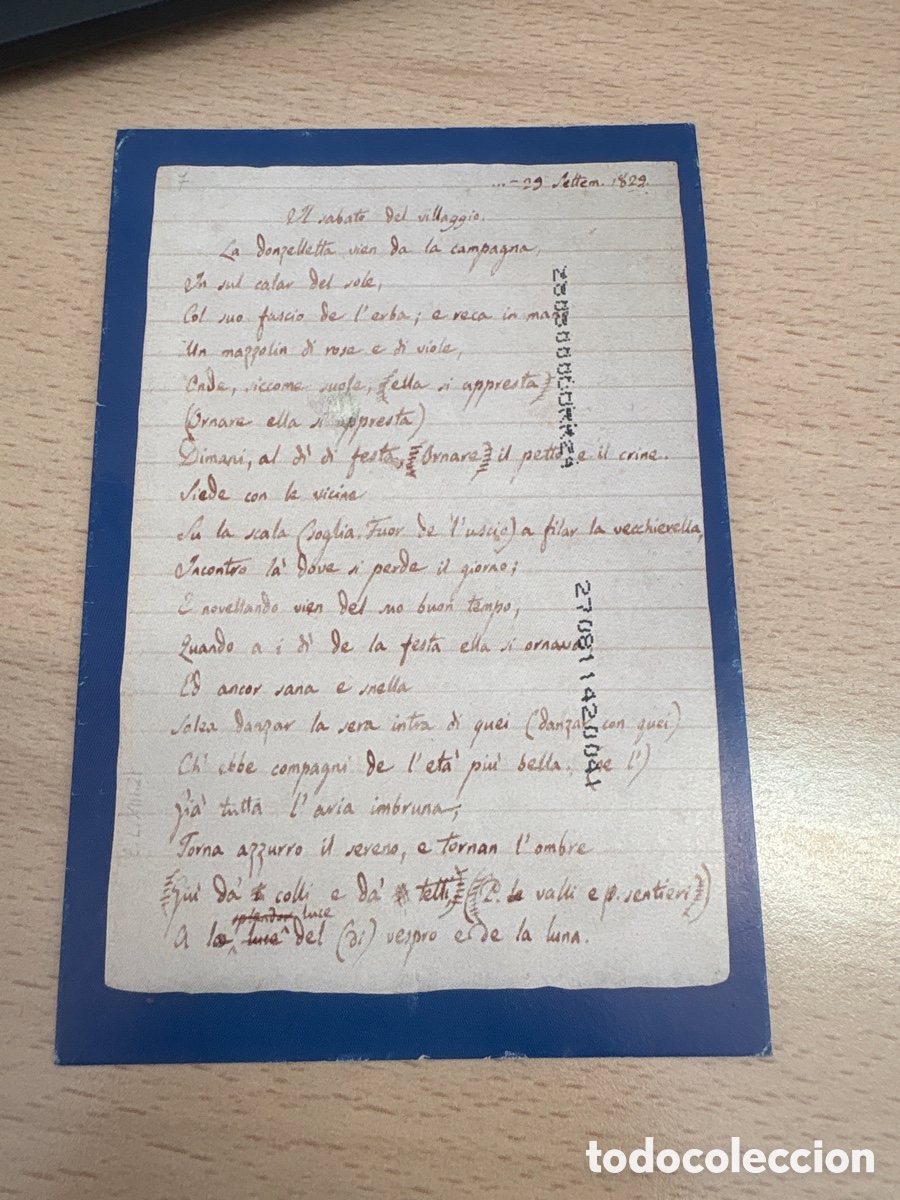 7
... - 29 Settem. 1829.
Il sabato del villaggio.
La donzelletta vien da la campagna,
In sul calar del sole,
Col suo fascio de l'erba; e reca in man
Un mazzolin di rose e di viole,
Onde, siccome suole, (ella si appresta)
(Ornare ella si appresta)
Dimani, al dì di festa, (Ornare) il petto e il crine.
Siede con le vicine
Su la scala (soglia. Fuor de l'uscio) a filar la vecchierella,
Incontro là dove si perde il giorno;
E novellando vien del suo buon tempo,
Quando a i dì de la festa ella si ornava
Ed ancor sana e snella
Solea danzar la sera intra di quei (danzar con quei)
Ch' ebbe compagni de l'età più bella.
Già tutta l'aria imbruna,
Torna azzurro il sereno, e tornan l'ombre
(Giù da' colli e da' tetti, (P. le valli e p. sentieri))
splendor luce
A la luce del (di) vespro e de la luna.
2708114200041
todocoleccion